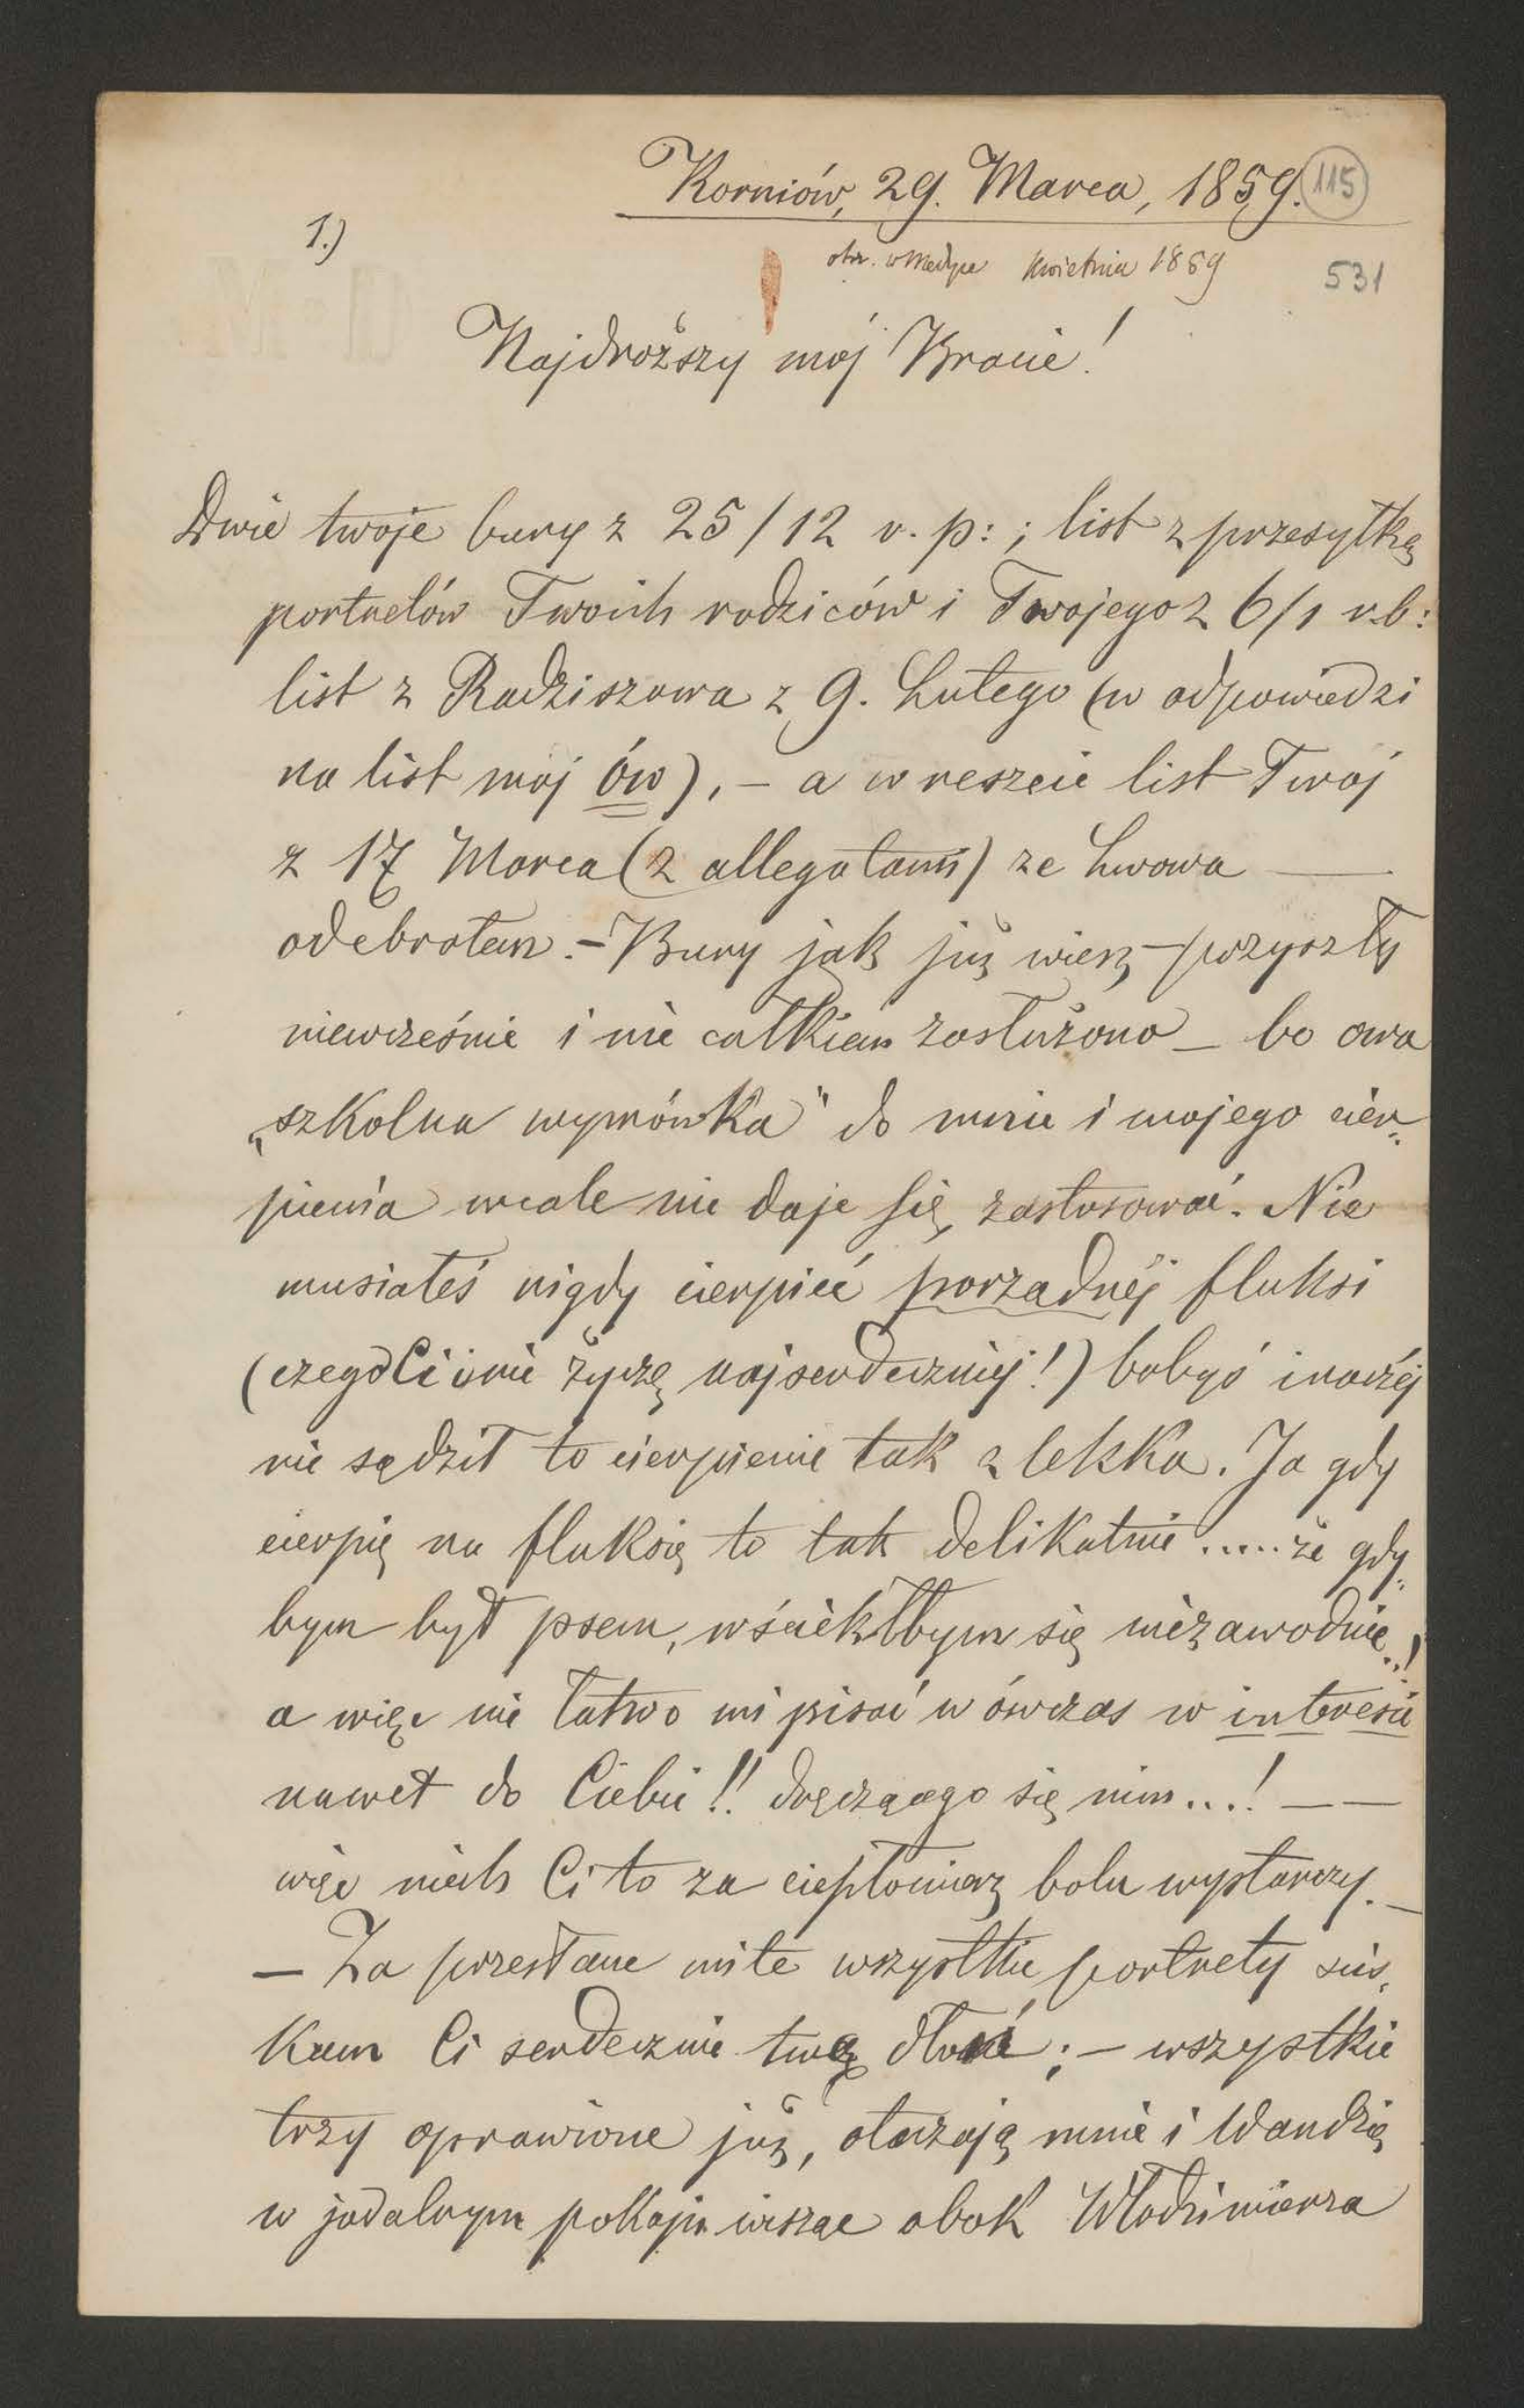 Korniów, 29. Marca, 1859.
115
1.)
otrz. w Medyce Kwietnia 1859
531
Najdroższy mój Bracie!
Dwie twoje bury z 25/12 r. p: ; list z przesyłką
portretów Twoich rodziców i Twojego z 6/1 r.b:
list z Radziszowa z 9. Lutego (w odpowiedzi
na list mój ów), – a w reszcie list Twój
z 17 Marca (z allegatami) ze Lwowa —
odebrałem. – Bury jak już wiesz – przyszły
niewcześnie i nie całkiem zasłużono – bo owa
„szkolna wymówka" do mnie i mojego cier„
pienia wcale nie daje się zastosować. Nie
musiałeś nigdy cierpieć porządnéj fluksi
(czego Ci i nie życzę najserdeczniej!) bobyś inaczéj
nie sądził to cierpienie tak z lekka. Ja gdy
cierpię na fluksię to tak delikatnie ..... że gdy„
bym był psem, wściekłbym się niezawodnie..!
a więc nie łatwo mi pisać w ówczas w interesie
nawet do Ciebie!! dręczącego się nim...! — —
więc niech Ci to za ciepłomierz bolu wystarczy. –
– Za przesłane miłe wszystkie portrety ścis„
kam Ci serdecznie twą dłoń; – wszystkie
trzy oprawione już, otaczają mnie i Wandzię
w jadalnym pokoju wisząc obok Włodzimierza